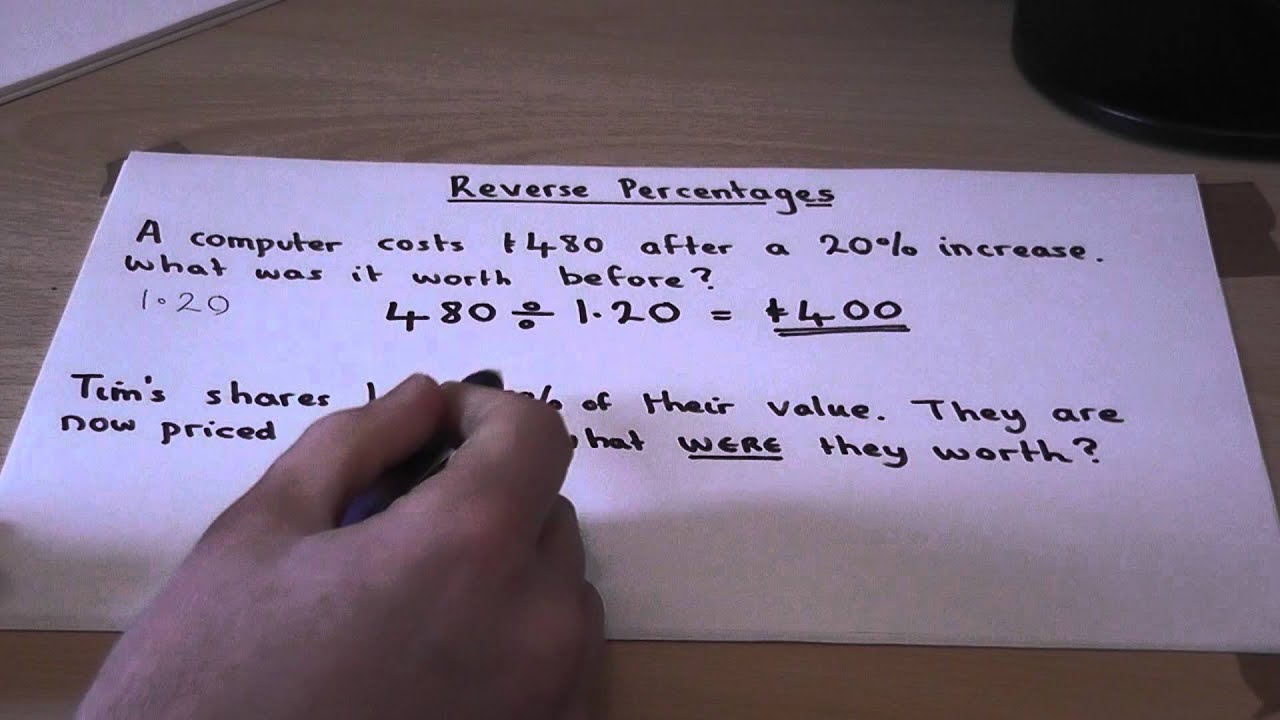 Reverse Percentages
A computer costs £480 after a 20% increase.
What was it worth before?
1.20
480 ÷ 1.20 = £400
Tim's shares % of their value. They are
now priced what WERE they worth?